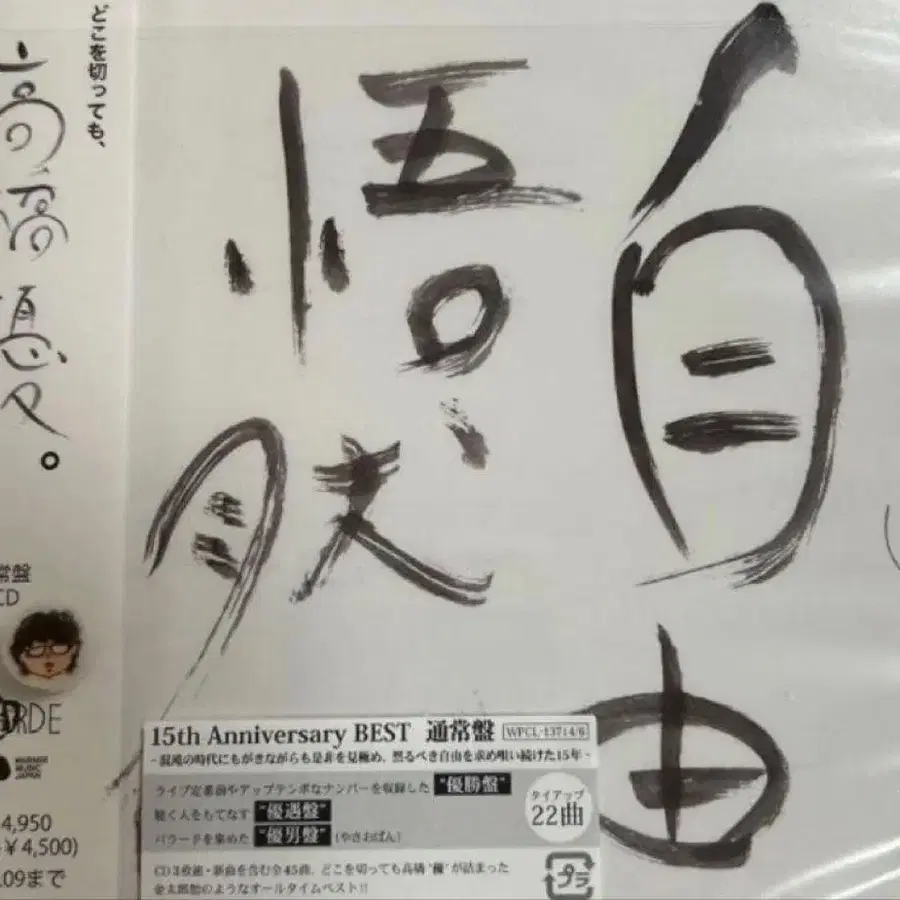 どこを切っても、
高橋優。
自由
悟然
常盤
CD
WARNER
MUSIC
JAPAN
4,950
¥4,500)
.09まで
15th Anniversary BEST 通常盤 WPCL-13714/6
- 混沌の時代にもがきながらも是非を見極め、然るべき自由を求め唄い続けた15年 -
ライブ定番曲やアップテンポなナンバーを収録した "優勝盤"
聴く人をもてなす "優遇盤"
バラードを集めた "優男盤" (やさおばん)
タイアップ
22曲
CD3枚組・新曲を含む全45曲、どこを切っても高橋"優"が詰まった
金太郎飴のようなオールタイムベスト!!
プラ